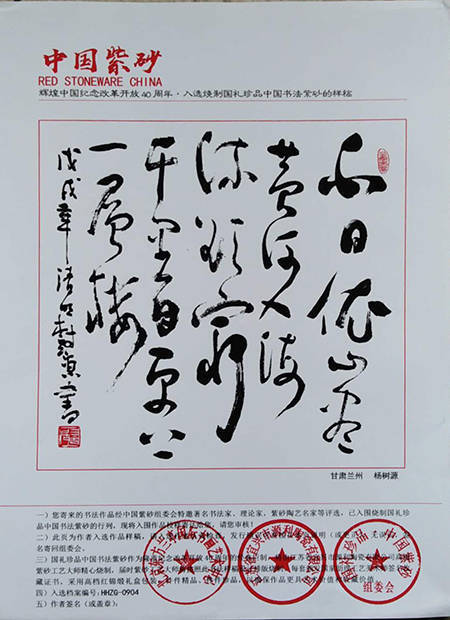 中国紫砂
RED STONEWARE CHINA
辉煌中国纪念改革开放40周年·入选烧制国礼珍品中国书法紫砂的样稿
白日依山尽
黄河入海
流欲穷
千里目更上
一层楼
戊戌年清明树源书
甘肃兰州 杨树源
一）您寄来的书法作品经中国紫砂组委会特邀著名书法家、理论家、紫砂陶艺名家等评选，已入围烧制国礼珍
品中国书法紫砂的行列，现将入围作品校稿寄送给您，请您审核！
二）此页为作者入选作品样稿，
名寄回组委会。
三）国礼珍品中国书法紫砂
紫砂工艺大师精心烧制，
藏证书，采用高档红锦缎礼盒包装，
四）入选档案编号：HHZG-0904
五）作者签名（或盖章）：
国礼珍品 中国紫砂
组委会